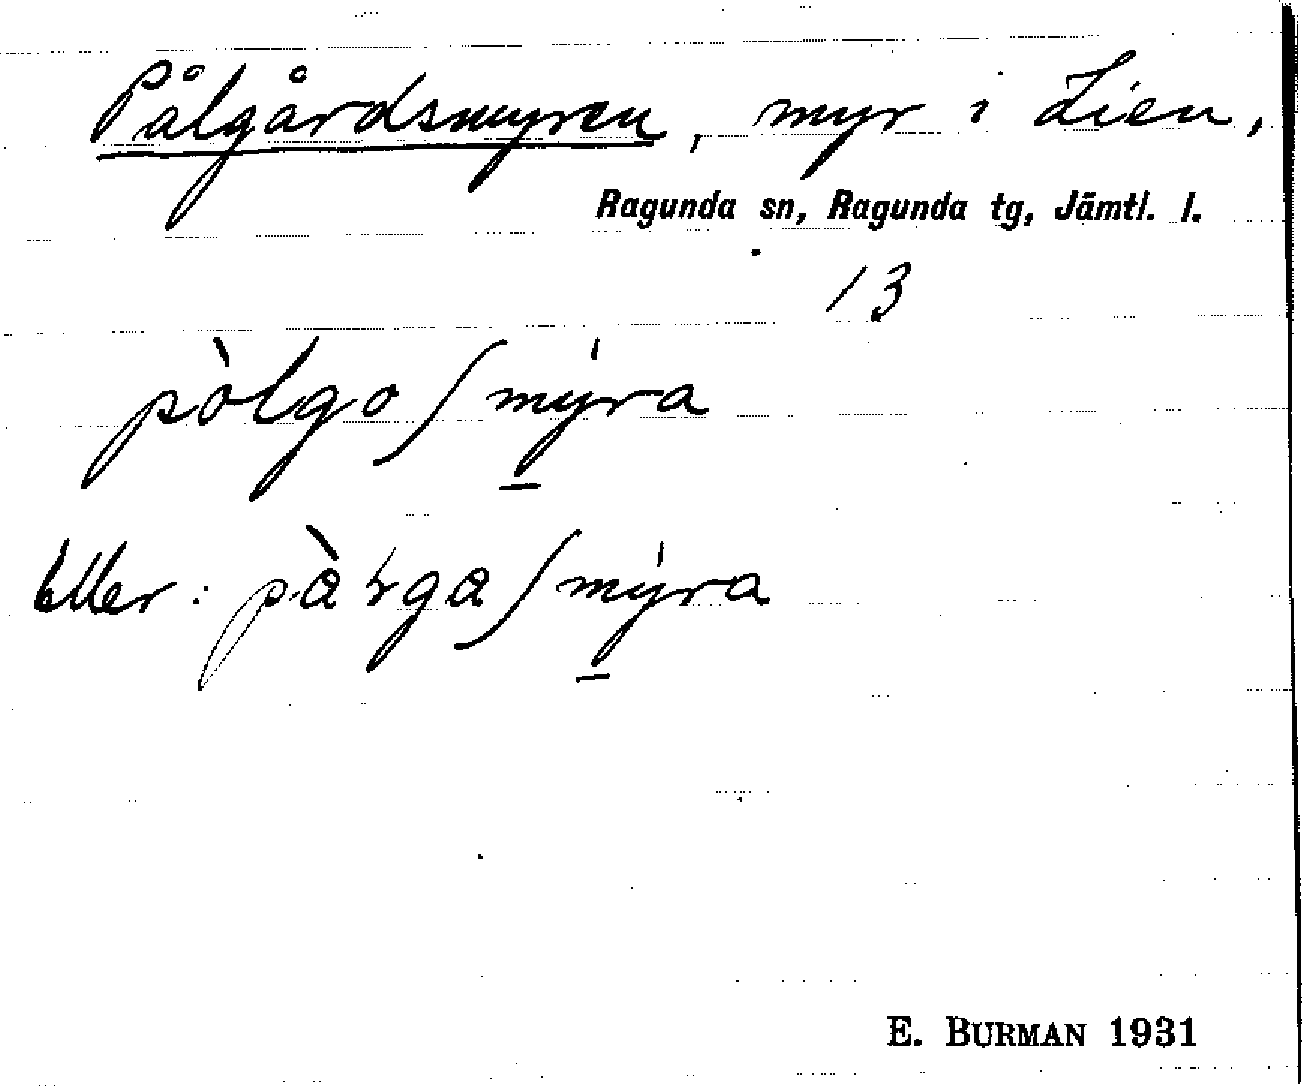 Pålgårdsmyren, myr i Lien,
Ragunda sn, Ragunda tg, Jämtl. l.
13
pòlgo/mýra
Eller: pàɽga/mýra
E. BURMAN 1931